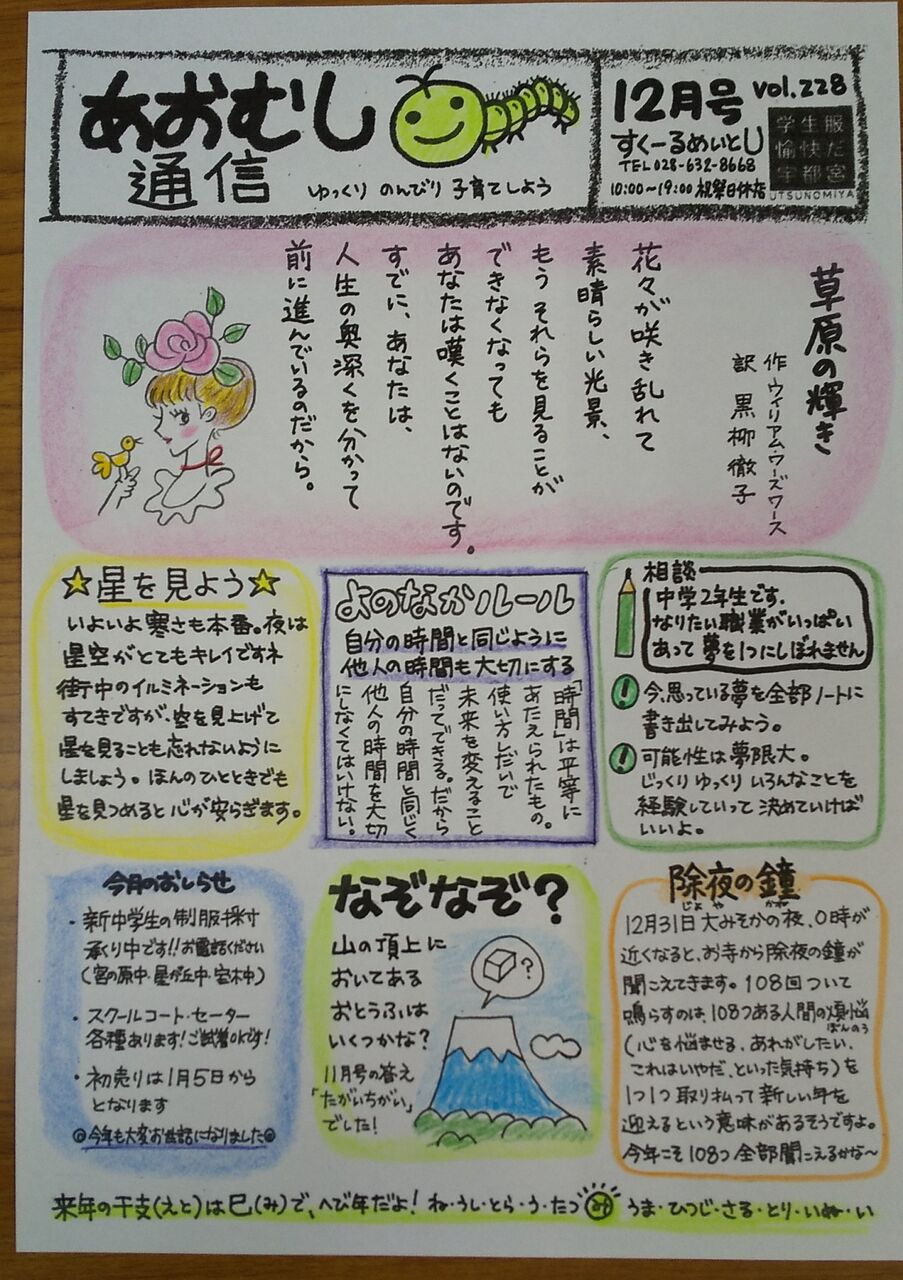 あおむし
通信
ゆっくり のんびり 子育てしよう
12月号 vol.228
すくーるめいとU
TEL 028-632-8668
10:00〜19:00 祝祭日休店
学生服
愉快だ
宇都宮
UTSUNOMIYA
草原の輝き
作 ウィリアム・ワーズワース
訳 黒柳徹子
花々が咲き乱れて
素晴らしい光景、
もう それらを見ることが
できなくなっても
あなたは嘆くことはないのです。
すでに、あなたは、
人生の奥深くを分かって
前に進んでいるのだから。
☆星を見よう☆
いよいよ寒さも本番。夜は
星空がとてもキレイですネ
街中のイルミネーションも
すてきですが、空を見上げて
星を見ることも忘れないように
しましょう。ほんのひとときでも
星を見つめると心が安らぎます。
よのなかルール
自分の時間と同じように
他人の時間も大切にする
「時間」は平等に
あたえられたもの。
使い方しだいで
未来を変えること
だってできる。だから
自分の時間と同じく
他人の時間を大切
にしなくてはいけない。
相談
中学2年生です。
なりたい職業がいっぱい
あって夢を1つにしぼれません
! 今、思っている夢を全部ノートに
書き出してみよう。
! 可能性は夢限大。
じっくりゆっくりいろんなことを
経験していって決めていけば
いいよ。
今月のおしらせ
・新中学生の制服採寸
承り中です!!お電話ください
(宮の原中・星が丘中・宮木中)
・スクールコート・セーター
各種あります!ご試着OKです!
・初売りは1月5日から
となります
◎今年も大変お世話になりました◎
なぞなぞ?
山の頂上に
おいてある
おとうふは
いくつかな?
11月号の答え
「たがいちがい」
でした!
?
除夜の鐘
じょや かね
12月31日大みそかの夜、0時が
近くなると、お寺から除夜の鐘が
聞こえてきます。108回ついて
鳴らすのは、108つある人間の煩悩
ぼんのう
(心を悩ませる、あれがしたい、
これはいやだ、といった気持ち)を
1つ1つ取り払って新しい年を
迎えるという意味があるそうですよ。
今年こそ108つ全部聞こえるかな〜
来年の干支(えと)は巳(み)で、へび年だよ! ね・うし・とら・う・たつ み うま・ひつじ・さる・とり・いぬ・い